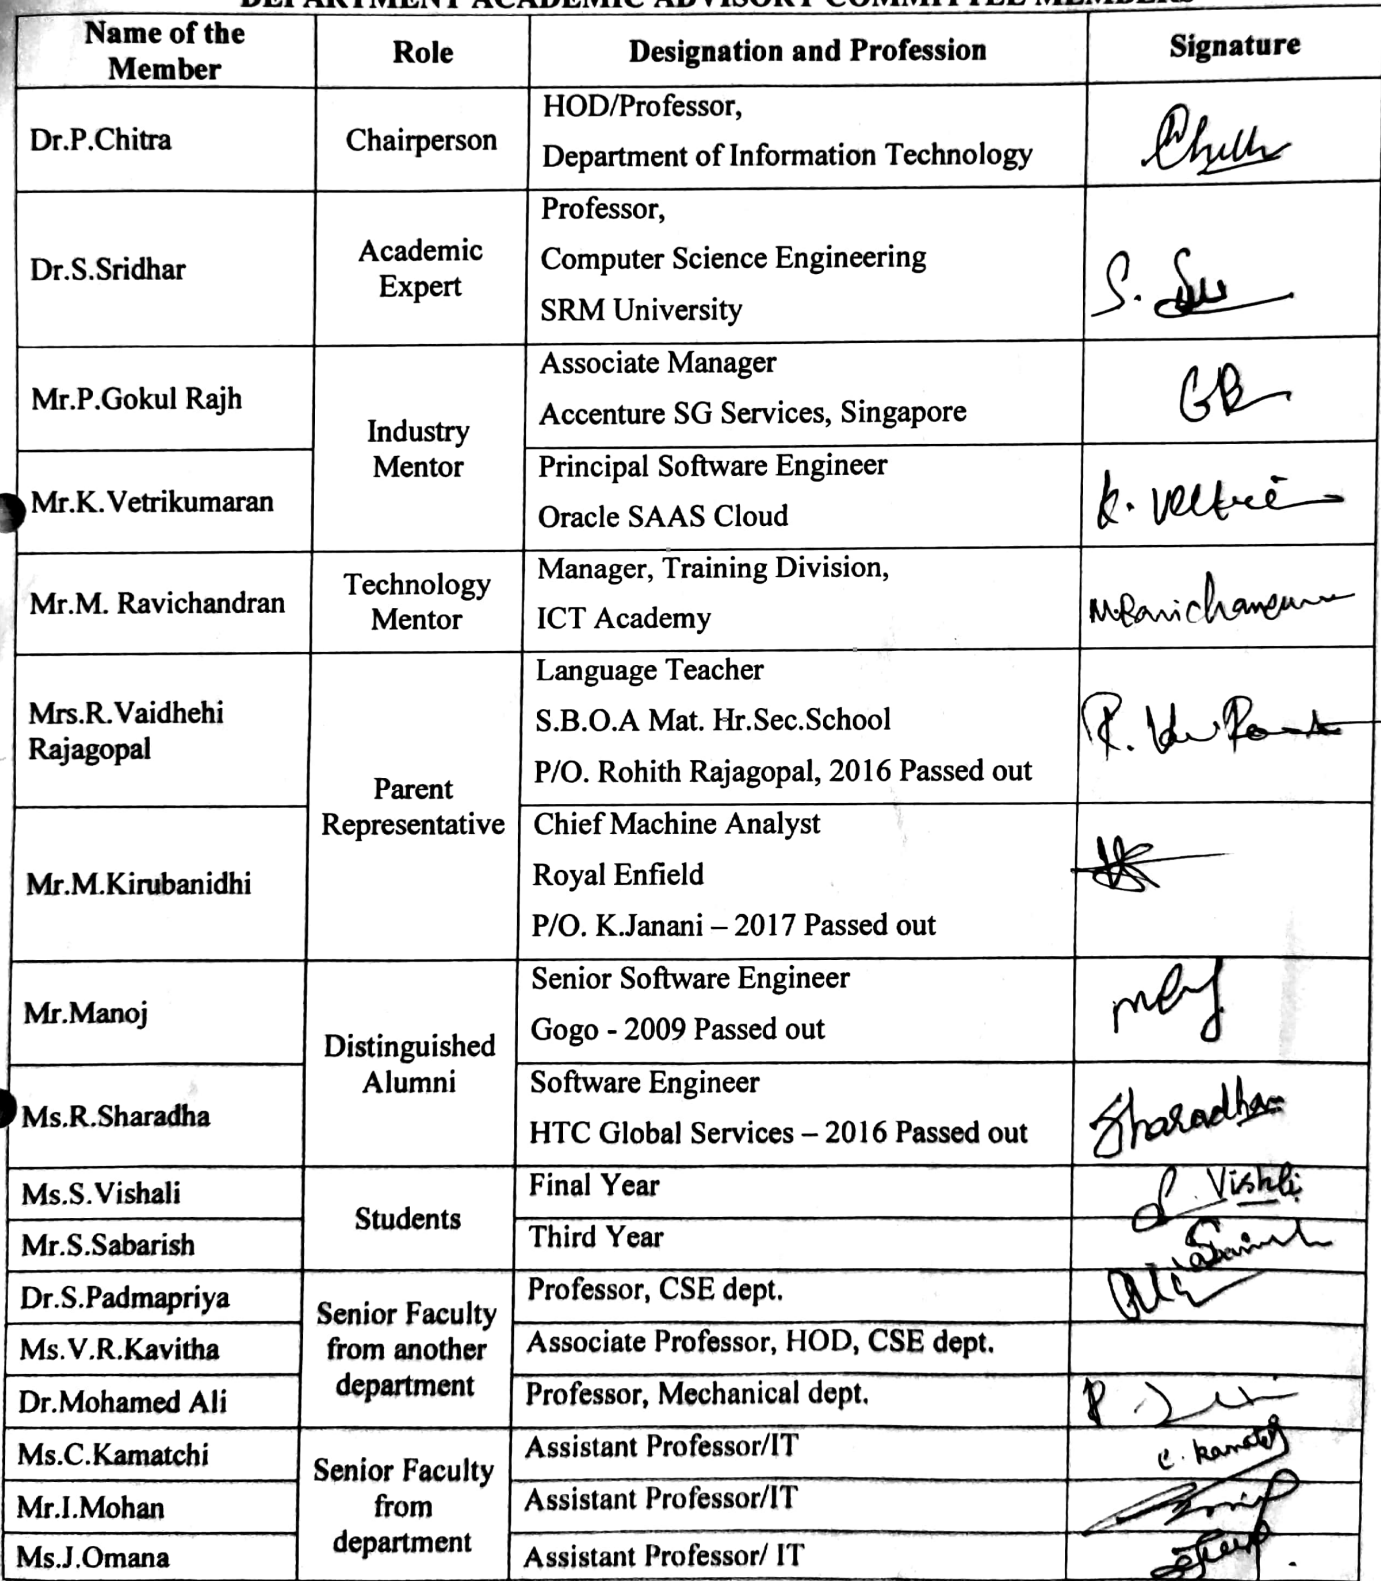 DEPARTMENT ACADEMIC ADVISORY COMMITTEE MEMBERS
Name of the Member Role Designation and Profession Signature
Dr.P.Chitra Chairperson HOD/Professor,
Department of Information Technology
Dr.S.Sridhar Academic Expert Professor,
Computer Science Engineering
SRM University
S.
Mr.P.Gokul Rajh Industry Mentor Associate Manager
Accenture SG Services, Singapore
Mr.K.Vetrikumaran Principal Software Engineer
Oracle SAAS Cloud
K.
Mr.M. Ravichandran Technology Mentor Manager, Training Division,
ICT Academy
Mrs.R.Vaidhehi Rajagopal Parent Representative Language Teacher
S.B.O.A Mat. Hr.Sec.School
P/O. Rohith Rajagopal, 2016 Passed out
R.
Mr.M.Kirubanidhi Chief Machine Analyst
Royal Enfield
P/O. K.Janani – 2017 Passed out
Mr.Manoj Distinguished Alumni Senior Software Engineer
Gogo - 2009 Passed out
Ms.R.Sharadha Software Engineer
HTC Global Services – 2016 Passed out
Sharadha
Ms.S.Vishali Students Final Year
S. Vishali
Mr.S.Sabarish Third Year
Dr.S.Padmapriya Senior Faculty from another department Professor, CSE dept.
Ms.V.R.Kavitha Associate Professor, HOD, CSE dept.
Dr.Mohamed Ali Professor, Mechanical dept.
Ms.C.Kamatchi Senior Faculty from department Assistant Professor/IT
C. Kamatchi
Mr.I.Mohan Assistant Professor/IT
Ms.J.Omana Assistant Professor/ IT